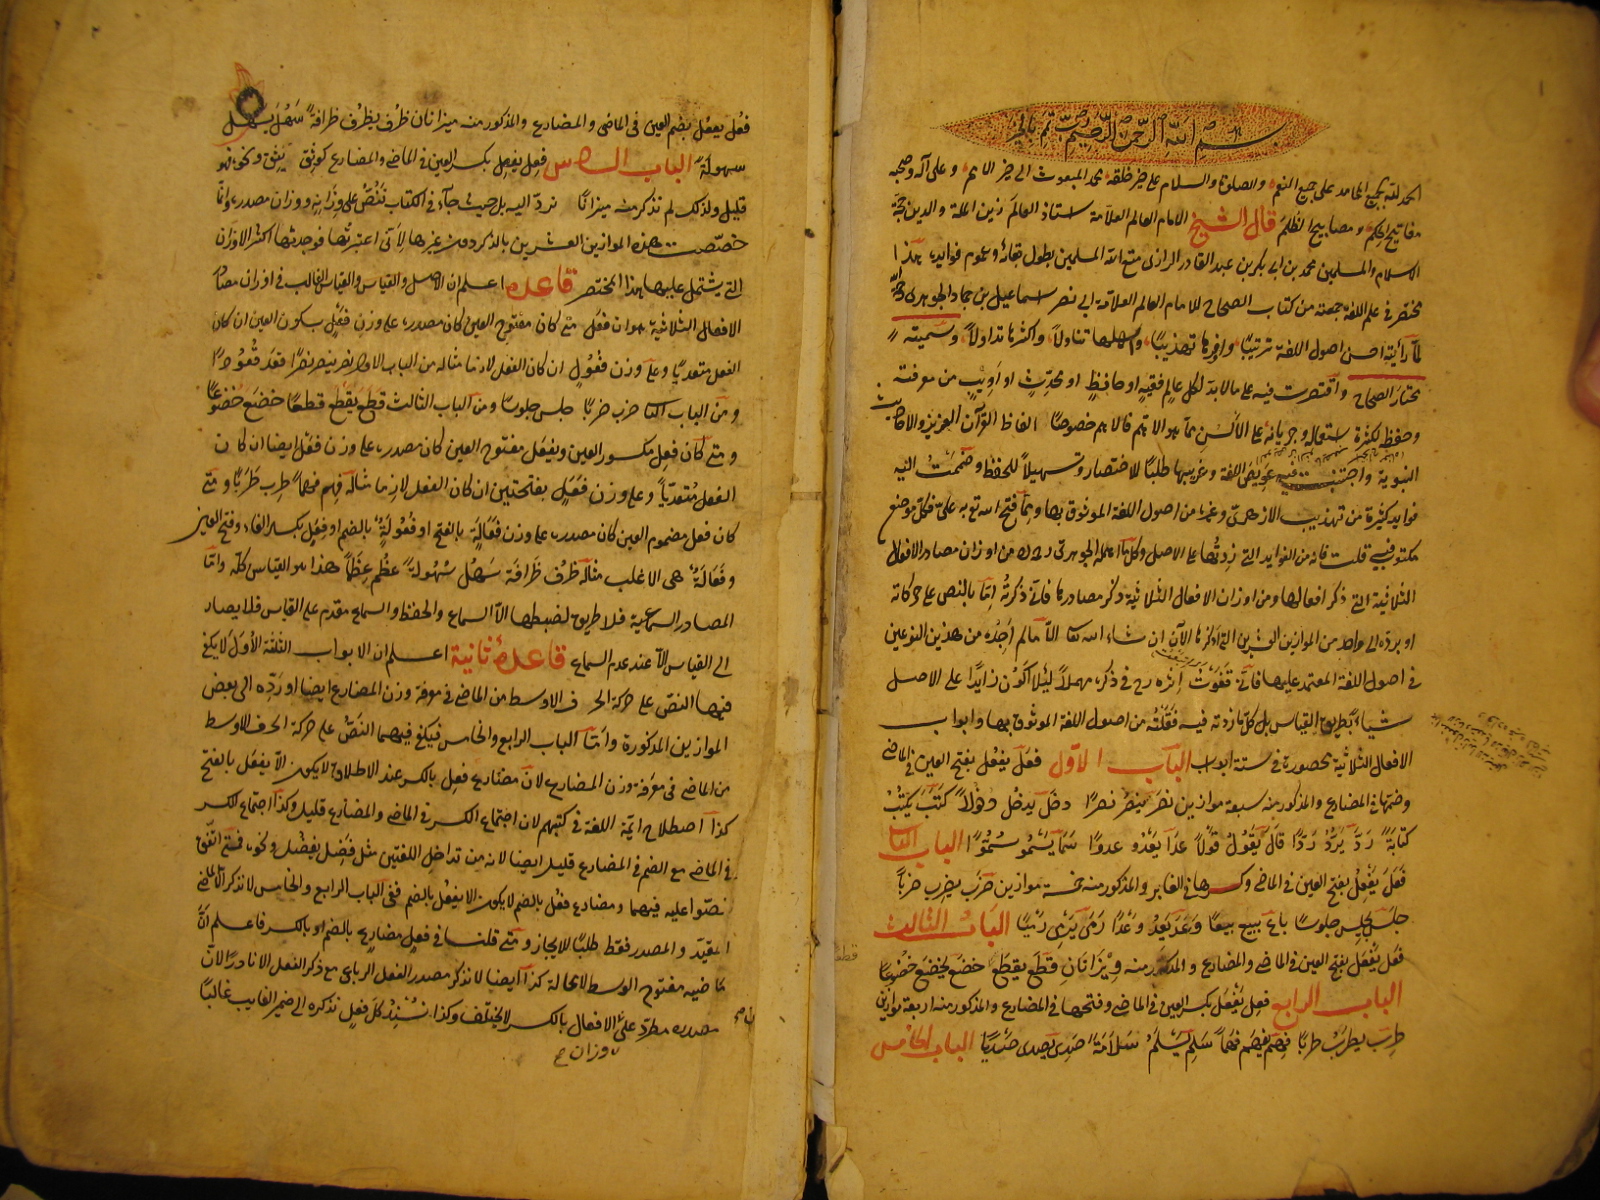 بسم الله الرحمن الرحيم رب تمم بالخير
الحمد لله بجميع المحامد على جميع النعم والصلوة والسلام على خير خلقه محمد المبعوث الى خير الامم وعلى آله وصحبه
مفاتيح الحكم ومصابيح الظلم قال الشيخ الامام العالم العلامة استاذ العالم زين الملة والدين حجة
الاسلام والمسلمين محمد بن ابى بكر بن عبد القادر الرازى متع الله المسلمين بطول بقائه وعموم فوايده هذا
مختصر فى علم اللغة جمعته من كتاب الصحاح للامام العالم العلامة ابى نصر اسماعيل بن حماد الجوهرى رحمه الله
لما رأيته احسن اصول اللغة ترتيبا واوفرها تهذيبا واسهلها تناولا واكثرها تداولا وسميته
مختار الصحاح واقتصرت فيه على ما لابد لكل عالم فقيه او حافظ او محدث او اديب من معرفته
وحفظه لكثرة استعماله وجريانه على الألسن مما هو الاهم فالاهم خصوصا الفاظ القرآن العزيز والاحاديث
النبوية واجتنبت فيه عويص اللغة وغريبها طلبا للاختصار وتسهيلا للحفظ وضممت اليه
فوايد كثيرة من تهذيب الازهرى وغيره من اصول اللغة الموثوق بها ومما فتح الله تع به على فكل موضع
مكتوب فيه قلت فانه من الفوايد التى زدتها على الاصل وكل ما اهمله الجوهرى من اوزان مصادر الافعال
الثلاثية التى ذكر افعالها ومن اوزان الافعال الثلاثية ذكر مصادرها فانى ذكرته اما بالنص على حركاته
او برده الى واحد من الموازين العشرين التى اذكرها الآن ان شاء الله تعا الا ما لم اجده من هذين النوعين
فى اصول اللغة المعتمد عليها فانى قفوت اثره رح فى ذكره مهملا لئلا اكون زايدا على الاصل
شيئا بطريق القياس بل كل ما زدته فيه فقلته من اصول اللغة الموثوق بها وابواب
الافعال الثلاثية محصورة فى ستة ابواب الباب الاول فعل يفعل بفتح العين فى الماضى
وضمها فى المضارع والمذكور منه سبعة موازين نصر ينصر نصرا دخل يدخل دخولا كتب يكتب
كتابة رد يرد ردا قال يقول قولا عدا يعدو عدوا سما يسمو سموا الباب الثانى
فعل يفعل بفتح العين فى الماضى وكسرها فى الغابر والمذكور منه خمسة موازين ضرب يضرب ضربا
جلس يجلس جلوسا باع يبيع بيعا وعد يعد وعدا رمى يرمى رميا الباب الثالث
فعل يفعل بفتح العين فى الماضى والمضارع والمذكور منه ميزانان قطع يقطع خضع يخضع خضوعا
الباب الرابع فعل يفعل بكسر العين فى الماضى وفتحها فى المضارع والمذكور منه اربعة موازين
طرب يطرب طربا فهم يفهم فهما سلم يسلم سلامة صدى يصدى صدى الباب الخامس
فعل يفعل بضم العين فى الماضى والمضارع والمذكور منه ميزانان ظرف يظرف ظرافة سهل يسهل
سهولة الباب السادس فعل يفعل بكسر العين فى الماضى والمضارع كوثق يثق ونحوه وهو
قليل ولذلك لم نذكر منه ميزانا نرده اليه بل حيث جاء فى الكتاب ننص على وزانه ووزان مصدره وانما
خصصت هذه الموازين العشرين بالذكر دون غيرها لأنى اعتبرتها فوجدتها اكثر الاوزان
التى يشتمل عليها هذا المختصر قاعدة اعلم ان الاصل والقياس والقياس الغالب فى اوزان مصادر
الافعال الثلاثية هو ان فعل متى كان مفتوح العين كان مصدره على وزن فعل بسكون العين ان كان
الفعل متعديا وعلى وزن فعول ان كان الفعل لازما مثاله من الباب الاول نصر ينصر نصرا قعد قعودا
ومن الباب الثانى ضرب ضربا جلس جلوسا ومن الباب الثالث قطع يقطع قطعا خضع خضوعا
ومتى كان فعل مكسور العين ويفعل مفتوح العين كان مصدره على وزن فعل ايضا ان كان
الفعل متعديا وعلى وزن فعل بفتحتين ان كان الفعل لازما مثاله فهم فهما طرب طربا ومتى
كان فعل مضموم العين كان مصدره على وزن فعالة بالفتح او فعولة بالضم او فعل بكسر الفاء وفتح العين
وفعالة هى الاغلب مثاله ظرف ظرافة سهل سهولة عظم عظما هذا هو القياس كله واما
المصادر السماعية فلا طريق لضبطها الا السماع والحفظ والسماع مقدم على القياس فلا يصار
الى القياس الا عند عدم السماع قاعدة ثانية اعلم ان الابواب الثلثة الأول لا يكفى
فيها النص على حركة الحرف الاوسط من الماضى فى معرفة وزن المضارع ايضا او رده الى بعض
الموازين المذكورة واما الباب الرابع والخامس فيكفى فيهما النص على حركة الحرف الاوسط
من الماضى فى معرفة وزن المضارع لان مضارع فعل بالكسر عند الاطلاق لا يكون الا يفعل بالفتح
كذا اصطلاح ائمة اللغة فى كتبهم لان اجتماع الكسر فى الماضى والمضارع قليل وكذا اجتماع الكسر
فى الماضى مع الضم فى المضارع قليل ايضا لانه من تداخل اللغتين مثل فضل يفضل ونحوه فمتى اتفق
نصوا عليه فيهما ومضارع فعل بالضم لا يكون الا يفعل بالضم ففى الباب الرابع والخامس لا نذكر الا الماضى
المقيد والمصدر فقط طلبا للايجاز ومتى قلنا فى فعل مضارع بالضم او بالكسر فاعلم ان
ماضيه مفتوح الوسط لا محالة كذا ايضا لا نذكر مصدر الفعل الرباعى مع ذكر الفعل الا نادرا لان
مصدره مطرد على الافعال بالكسر لا يختلف وكذا نسند كل فعل نذكره الى ضمير الغايب غالبا
وزان